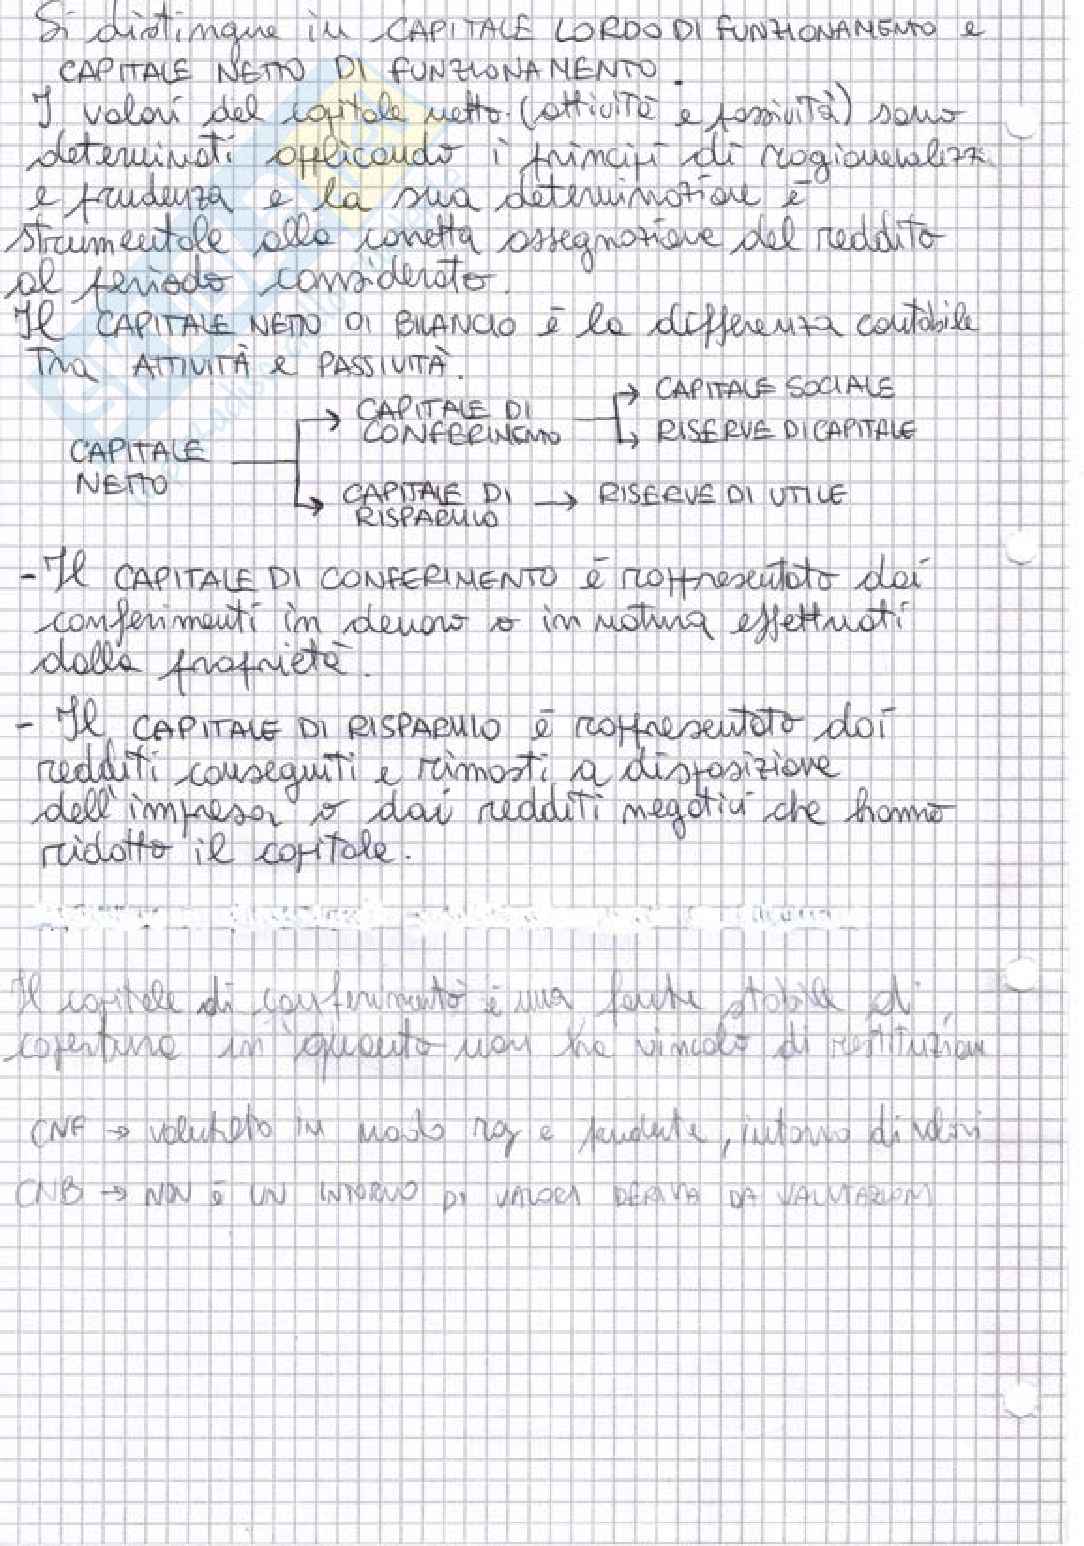 Si distingue in CAPITALE LORDO DI FUNZIONAMENTO e
CAPITALE NETTO DI FUNZIONAMENTO.
I valori del capitale netto (attività e passività) sono
determinati applicando i principi di ragionevolezz
e prudenza e la sua determinazione è
strumentale alla corretta assegnazione del reddito
al periodo considerato.
Il CAPITALE NETTO DI BILANCIO è la differenza contabile
tra ATTIVITÀ e PASSIVITÀ.
CAPITALE NETTO
→ CAPITALE DI CONFERIMENTO
→ CAPITALE SOCIALE
→ RISERVE DI CAPITALE
→ CAPITALE DI RISPARMIO → RISERVE DI UTILE
- Il CAPITALE DI CONFERIMENTO è rappresentato dai
conferimenti in denaro o in natura effettuati
dalla proprietà.
- Il CAPITALE DI RISPARMIO è rappresentato dai
redditi conseguiti e rimasti a disposizione
dell'impresa o dai redditi negativi che hanno
ridotto il capitale.
Il capitale di conferimento è una fonte stabile di
copertura in quanto non ha vincolo di restituzion
CNF → valutato in modo rag e prudente, intorno di valori
CNB → NON È UN INTORNO DI VALORI DERIVA DA VALUTAZIONI